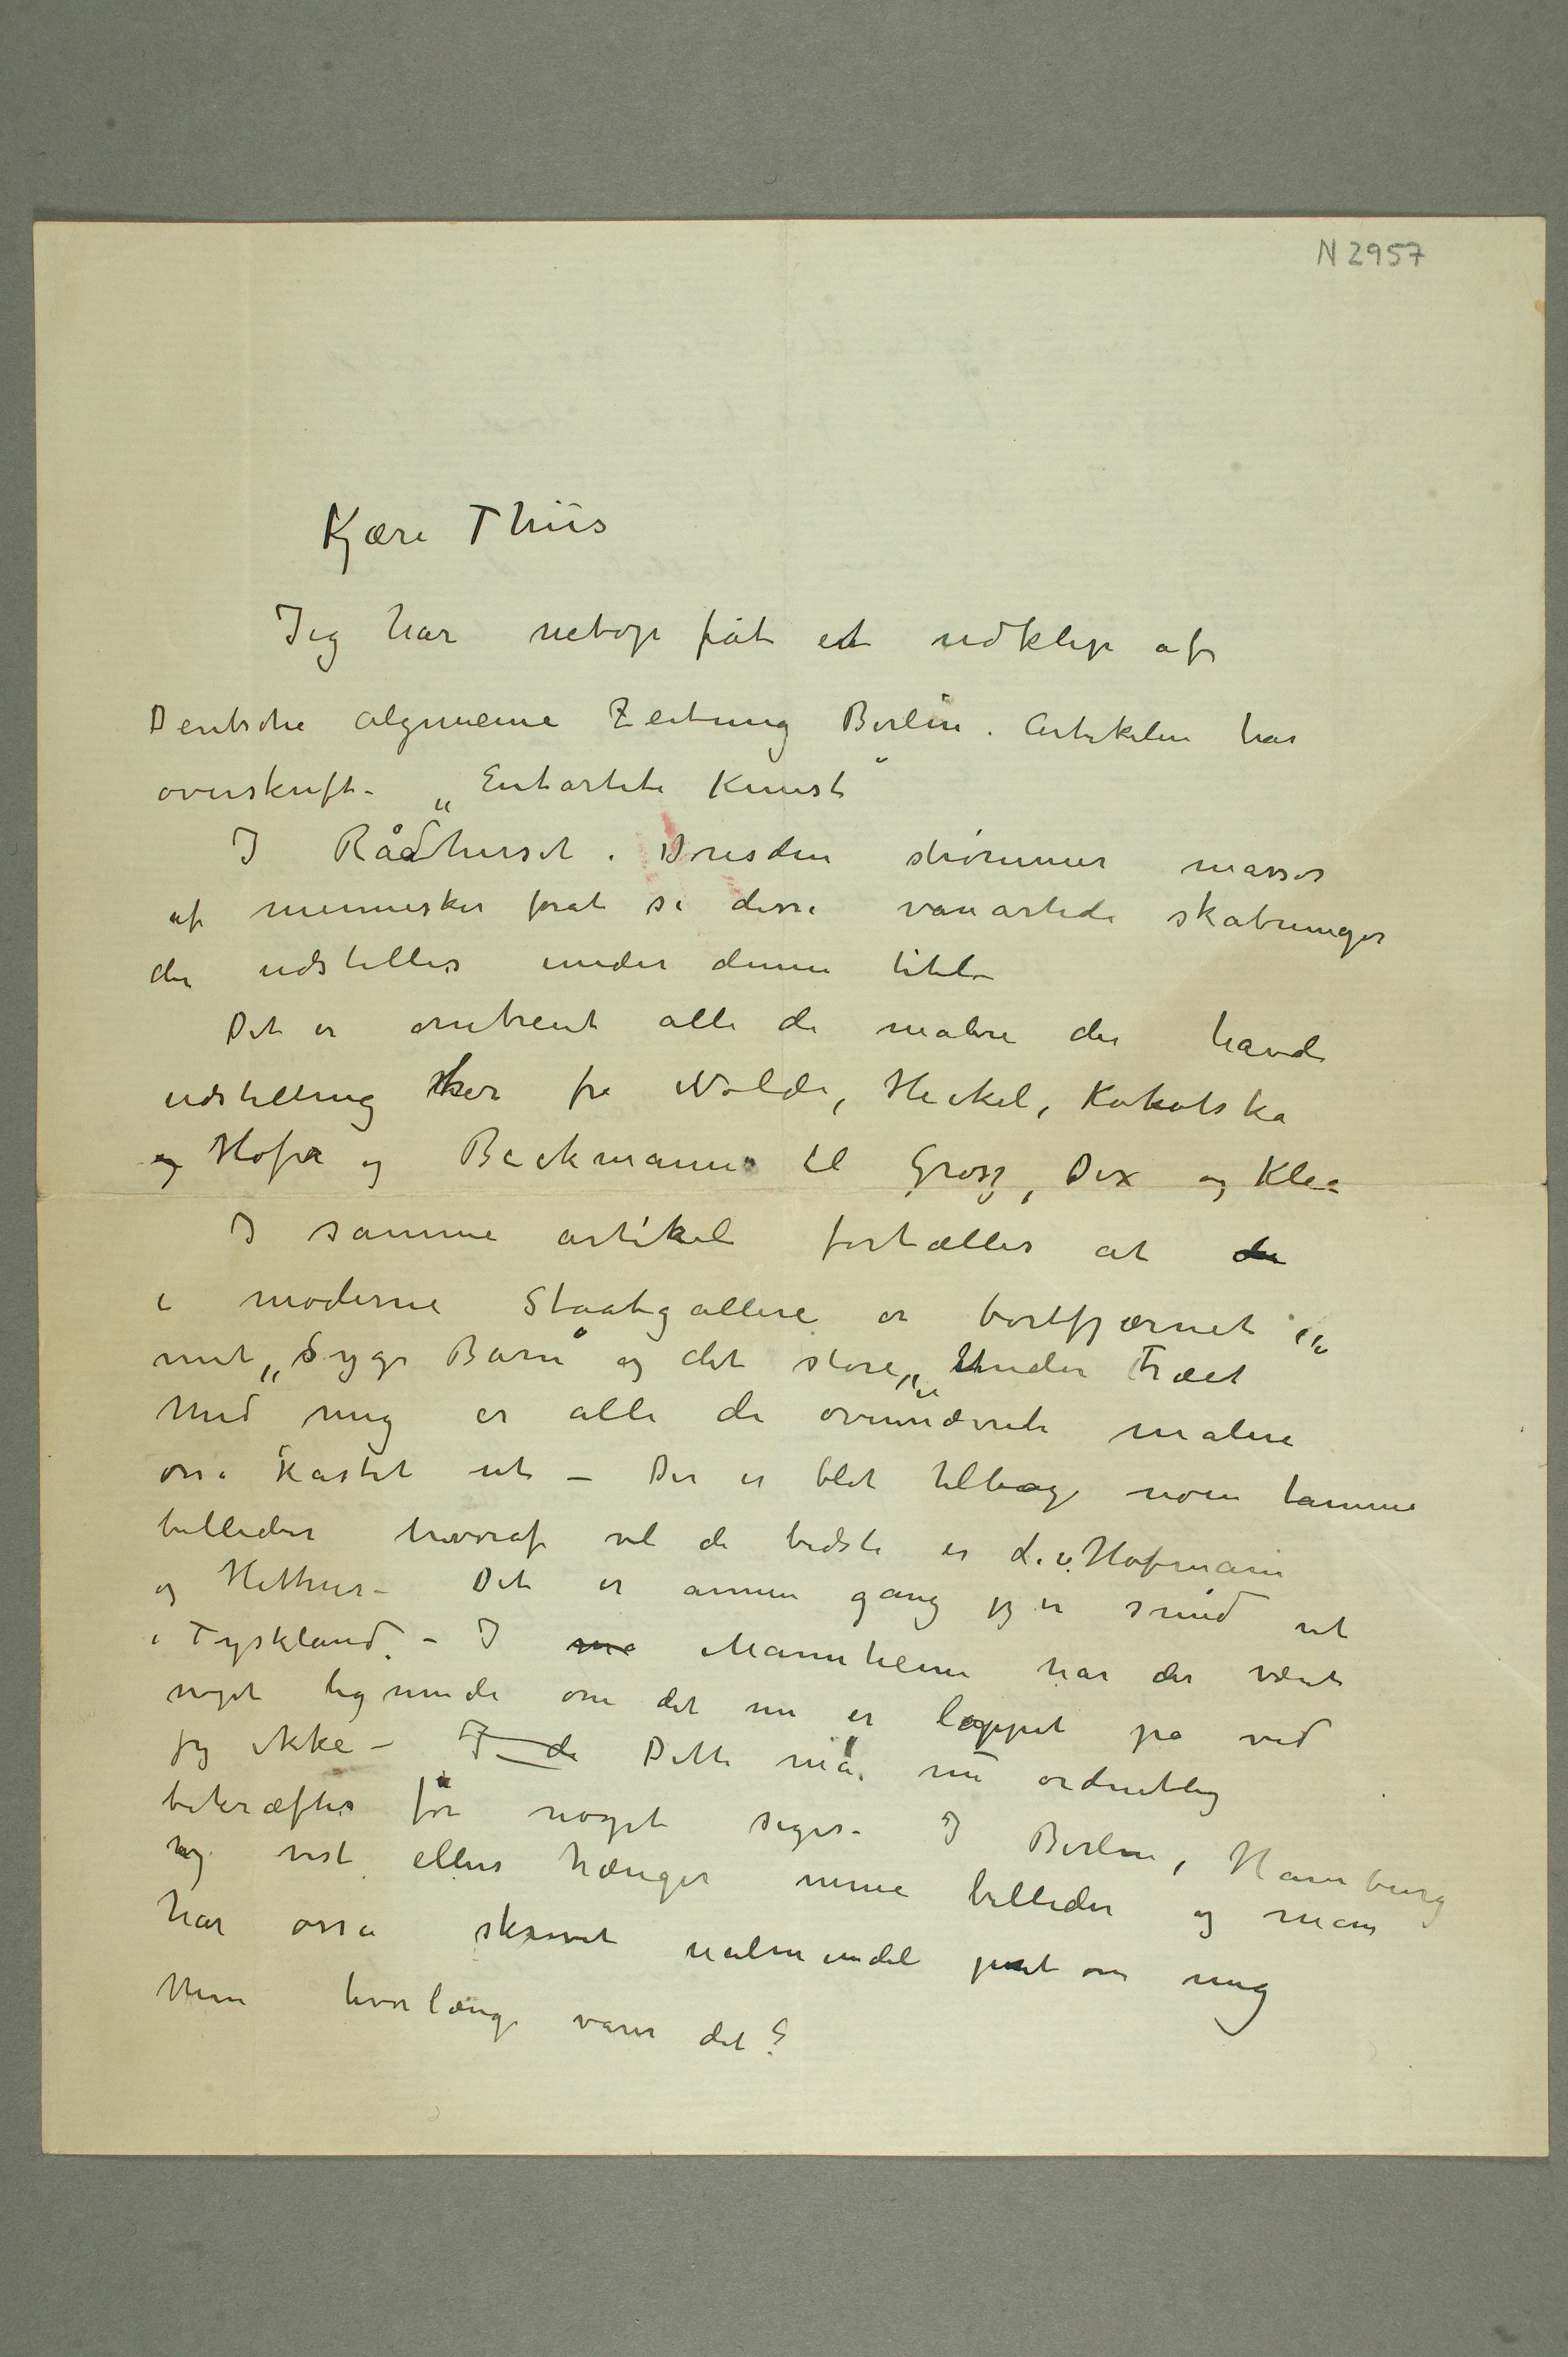 N 2957
Kjære Thiis
Jeg har netop fåt et udklip af
Deutsche algemeine Zeitung Berlin. Artikelen har
overskrift – „Entartete Kunst“
I Rådhuset i Dresden strømmer masser
af mennesker forat se disse vanartede skabninger
der udstilles under denne titel –
Det er omtrent alle de malere der havde
udstilling her fra Nolde, Heckel, Kokotska
og Hofer og Beckmann til Grosz, Dix og Klee
I samme artikel fortælles at de
i moderne Staatsgallerie er bortfjærnet
mit „Syge Barn“ og det store „Under Træet“
Med mig er alle de ovennævnte malere
osså kastet ut – Der er blot tilbage noen tamme
billeder hvoraf vel de bedste er L. v. Hofmann
og Hettner – Det er annen gang jeg er smid ut
i Tyskland. – I ma Mannheim har der været
noget lignende om det nu er lappet på ved
jeg ikke – I de Dette må nu ordentlig
bekræftes før noget siges – I Berlin, Hamburg
og vist ellers hænger mine billeder og man
har osså skrevet ualmindel pent om mig
Men hvorlænge varer det?